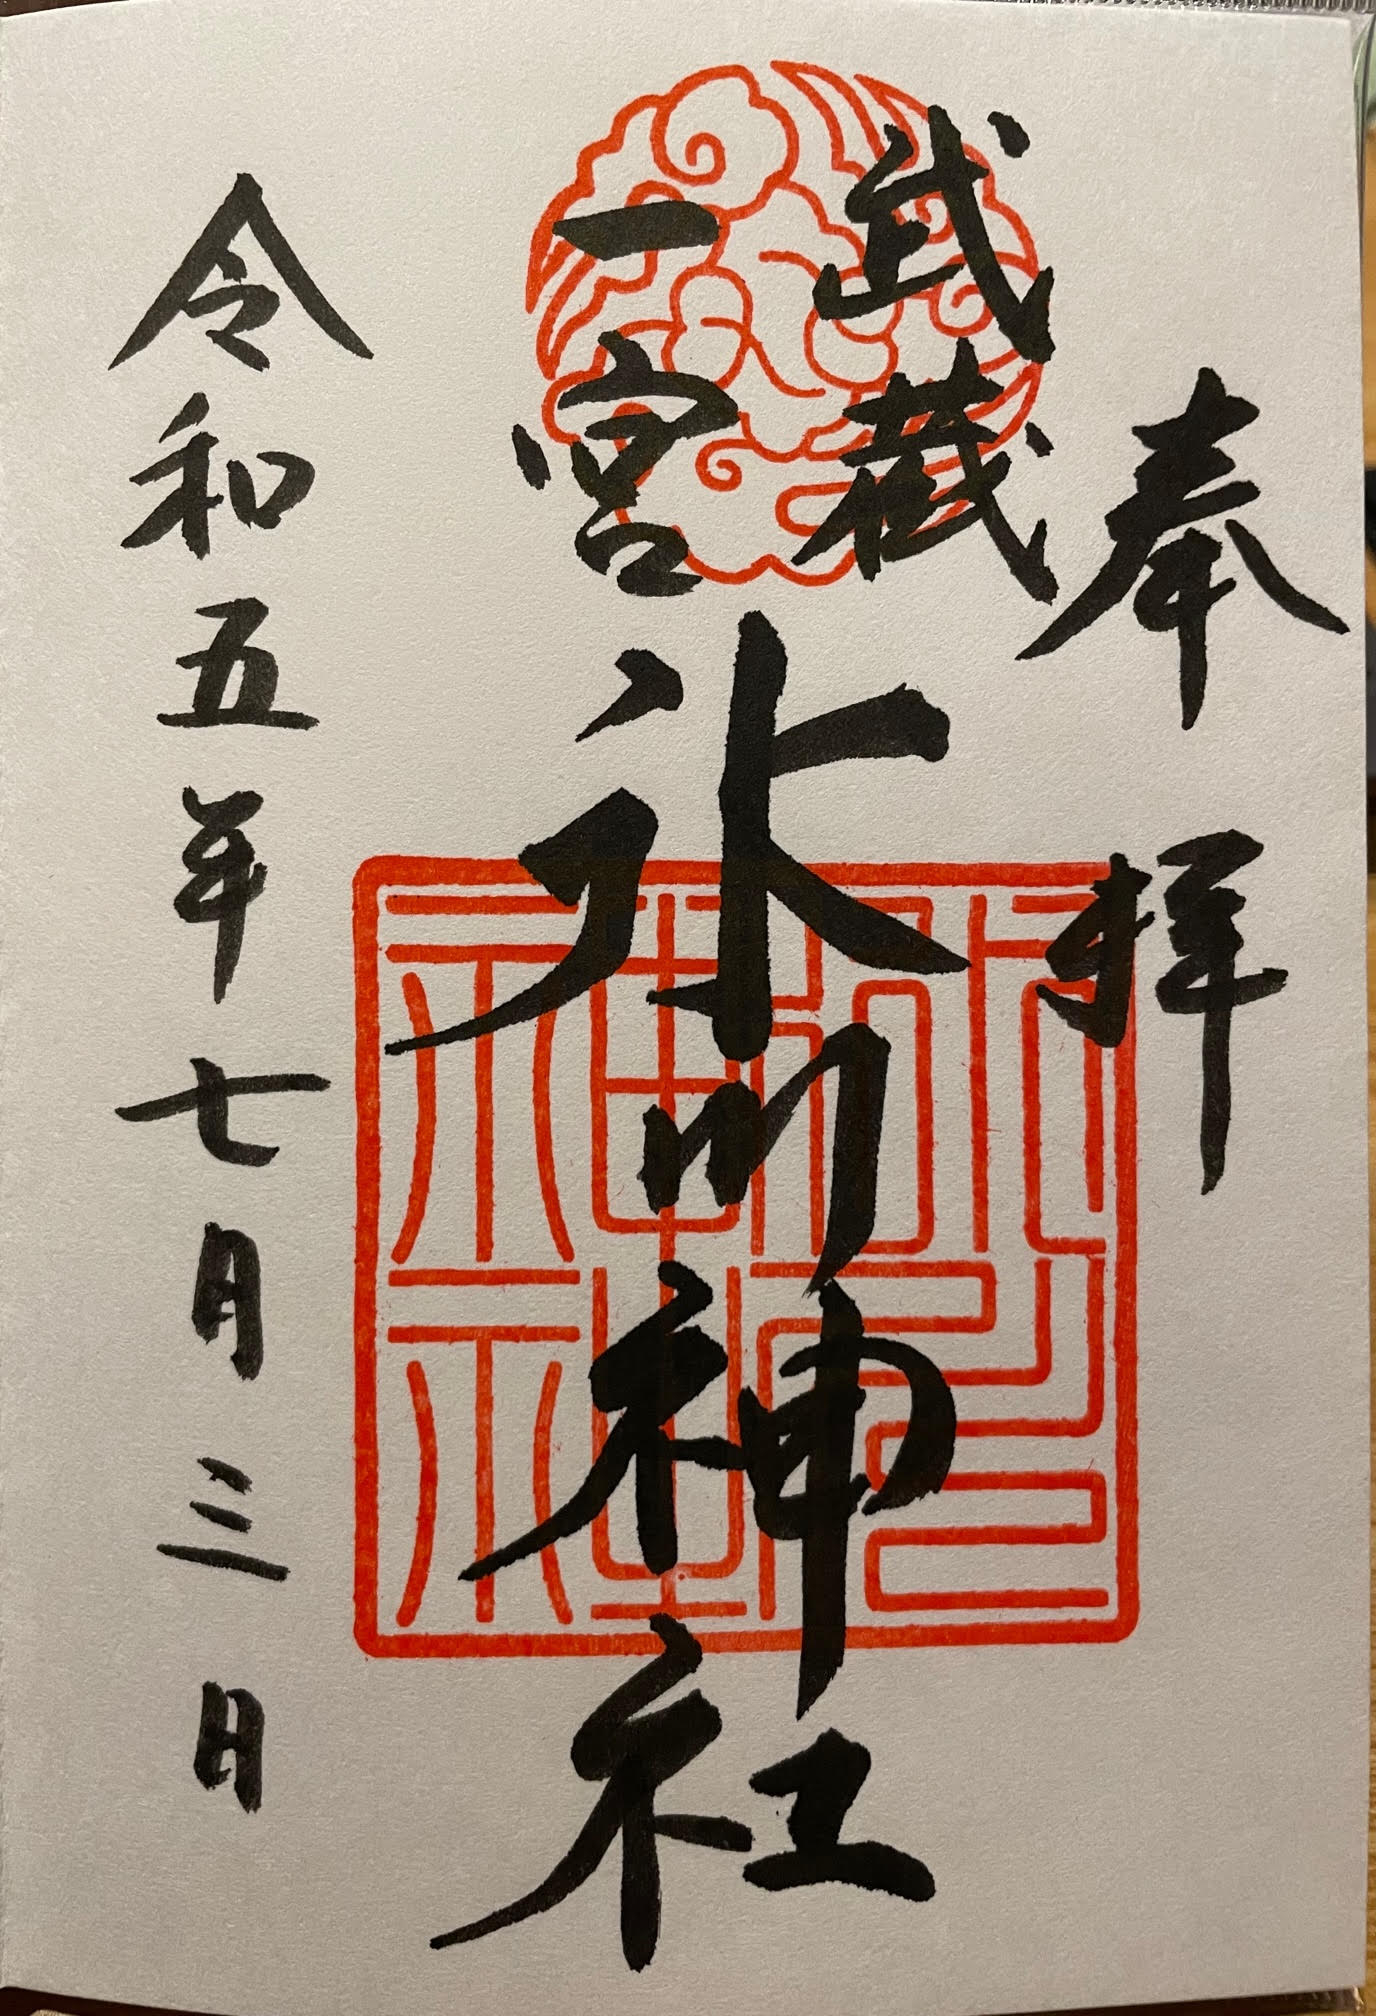 奉拝
武蔵
一宮
氷川神社
令和五年七月三日